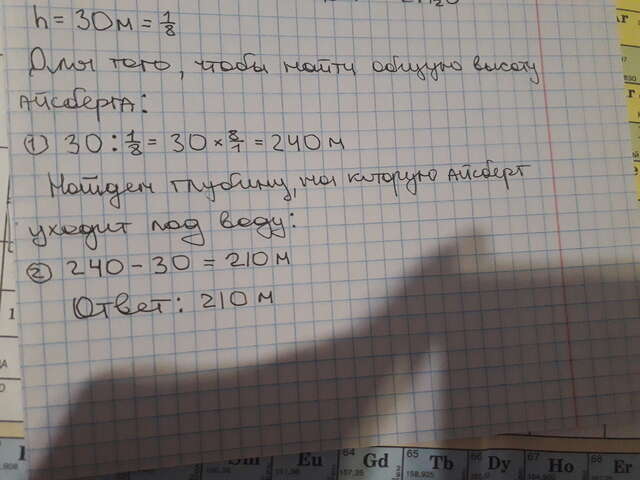 h = 30м = 1/8
Для того, чтобы найти общую высоту
АЙСБЕРГА:
1) 30 : 1/8 = 30 × 8/1 = 240 м
Найдем глубину, на которую АЙСБЕРГ
уходит под воду:
2) 240 - 30 = 210 м
Ответ: 210 м
Eu
64
Gd
157,25
65
Tb
158,925
66
Dy
67
Ho
68
Er